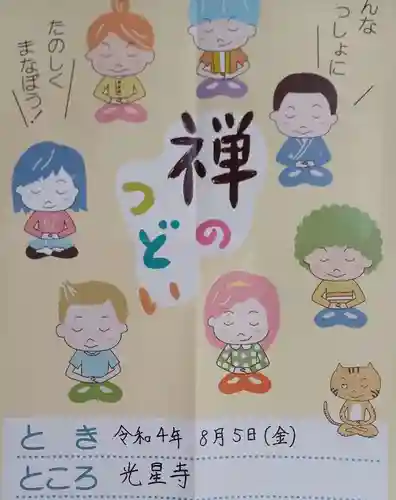 んな
っしょに
たのしく
まなぼう!
禅
の
つどい
とき 令和4年 8月5日(金)
ところ 光星寺